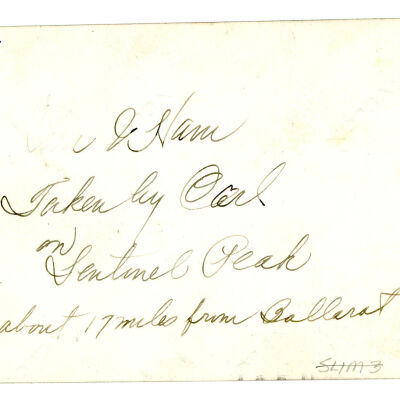 & Ham
Taken by Carl
on
Sentinel Peak
about 17 miles from Ballarat
SLIM 3